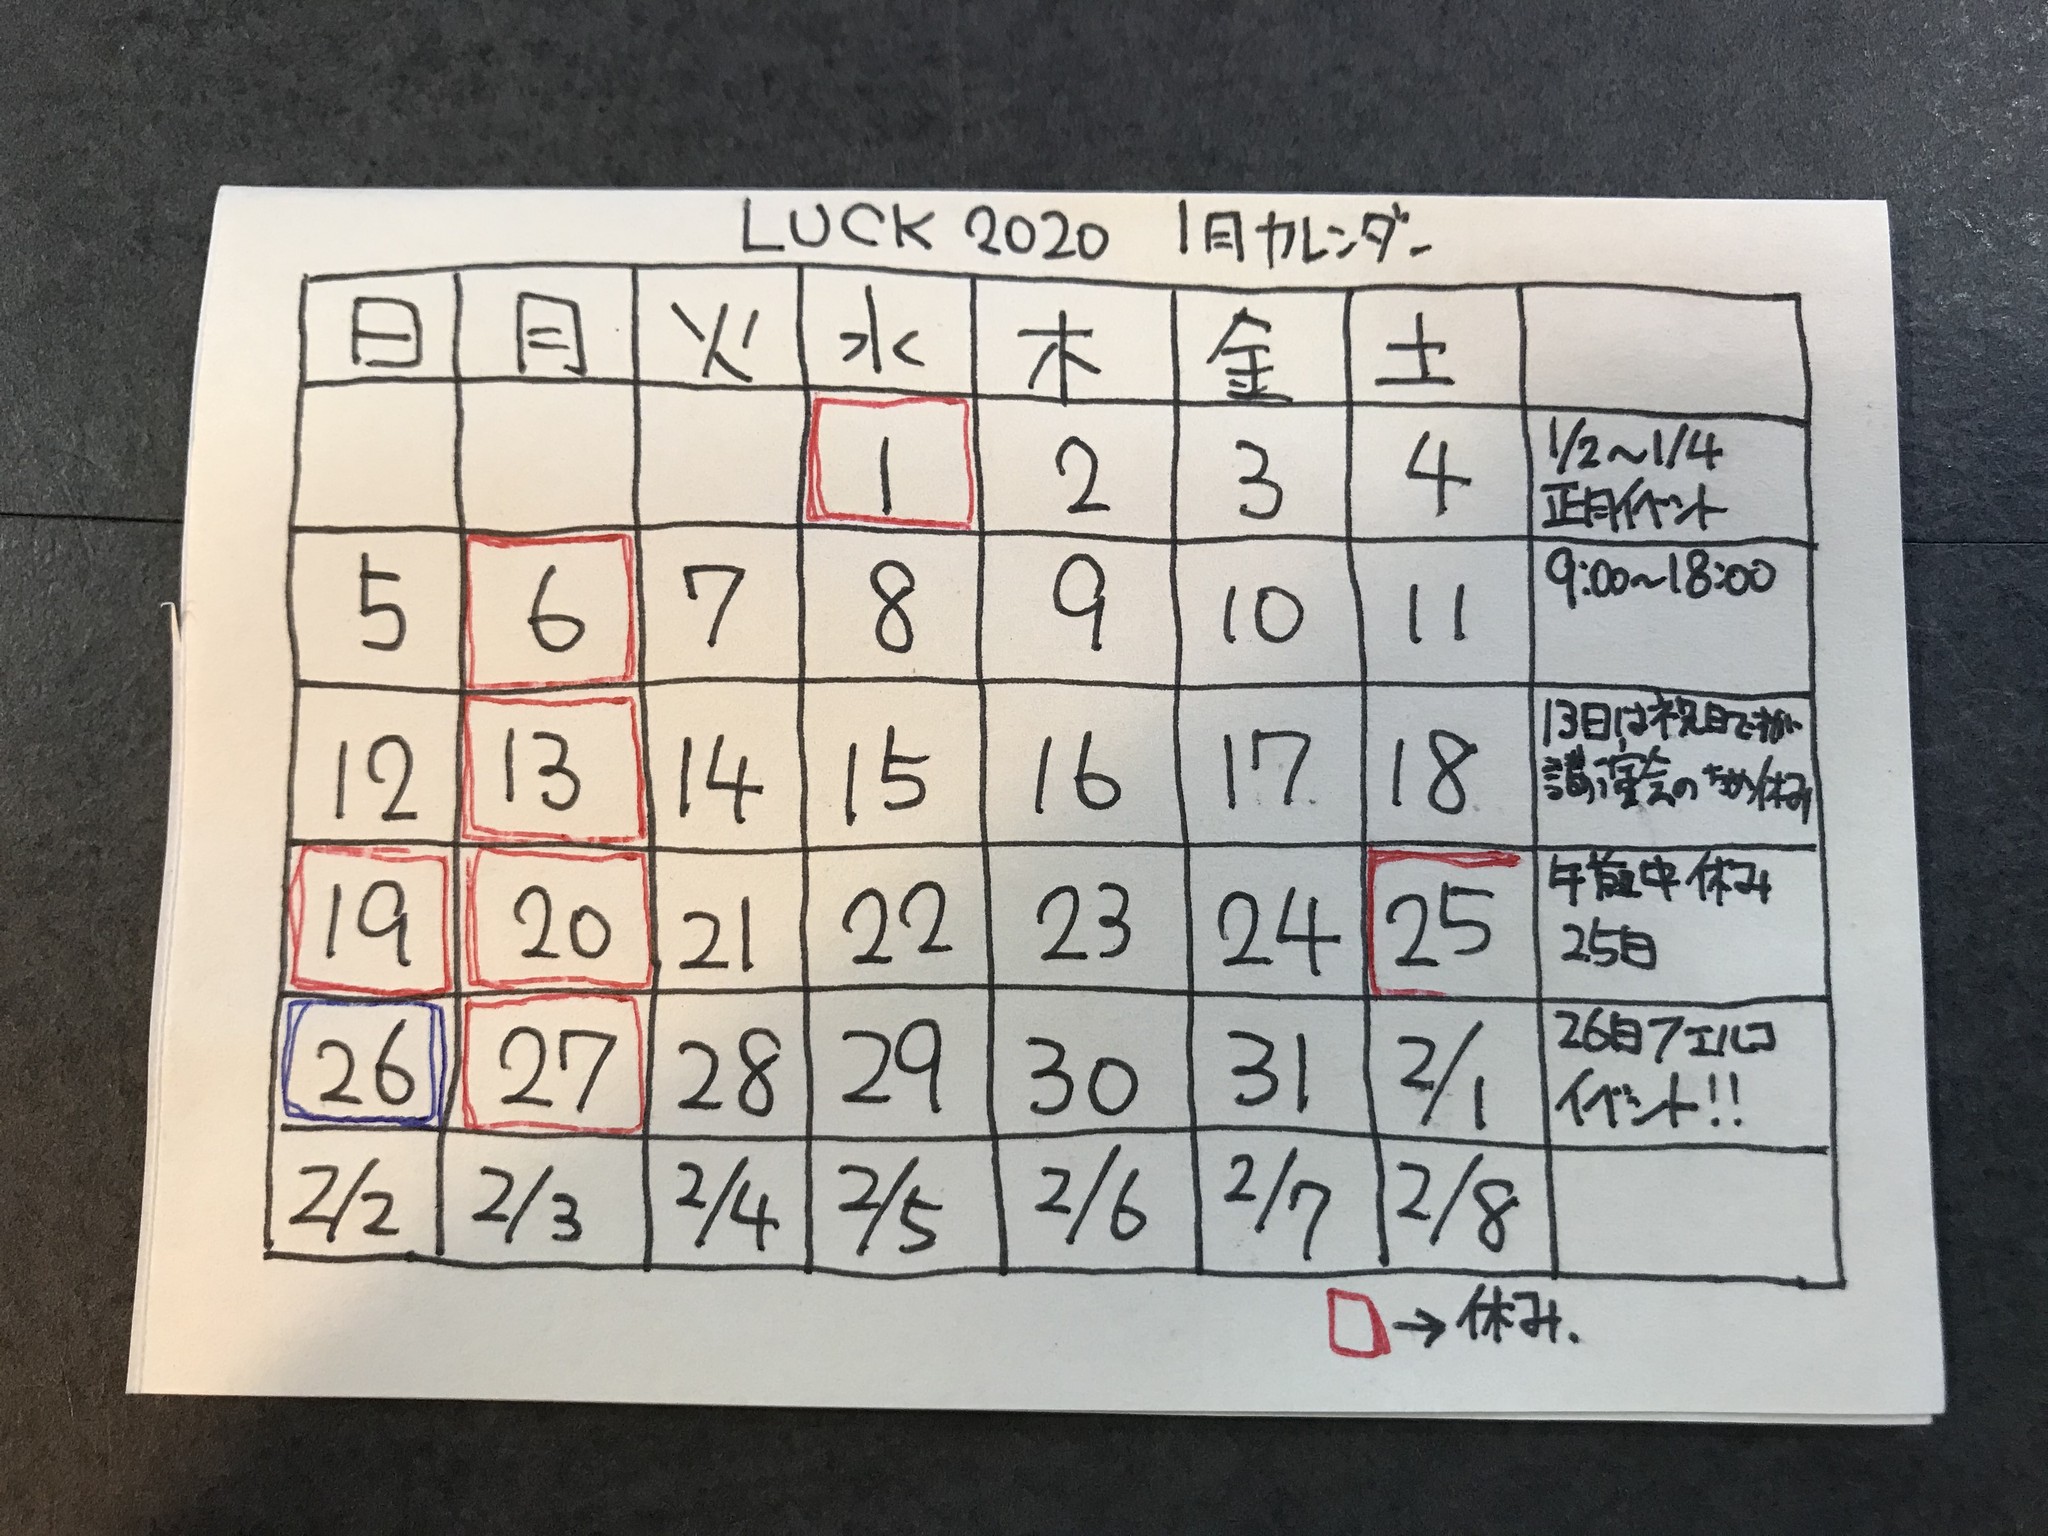 LUCK 2020 1月カレンダー
日 月 火 水 木 金 土
1 2 3 4
1/2~1/4
正月イベント
5 6 7 8 9 10 11
9:00~18:00
12 13 14 15 16 17 18
13日は祝日ですが
講演会のため休み
19 20 21 22 23 24 25
午前中休み
25日
26 27 28 29 30 31 2/1
26日フェルコ
イベント!!
2/2 2/3 2/4 2/5 2/6 2/7 2/8
→休み.